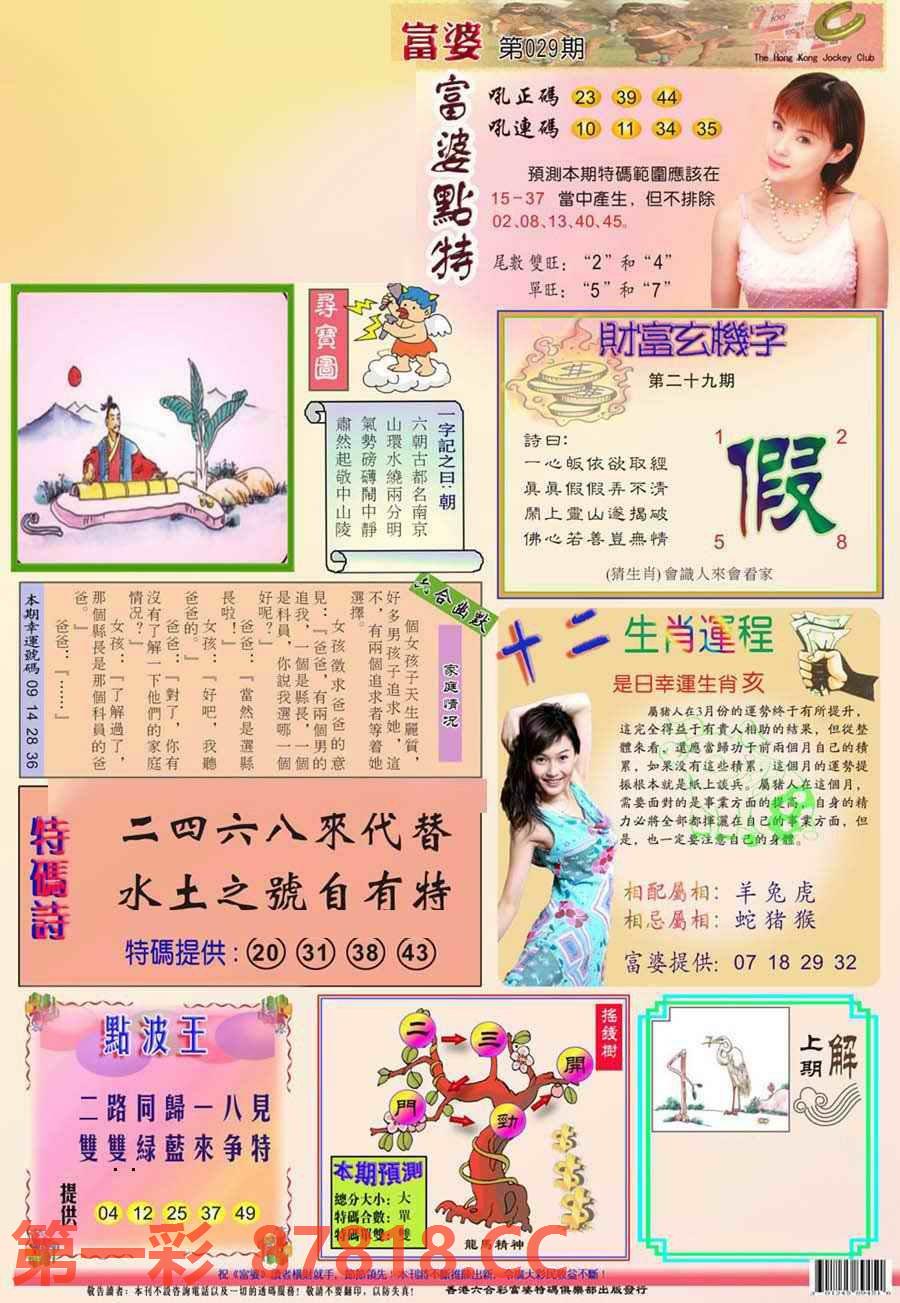 富婆 第029期
The Hong Kong Jockey Club
富婆點特
吼正碼 23 39 44
吼連碼 10 11 34 35
預測本期特碼範圍應該在
15-37 當中產生，但不排除
02、08、13、40、45。
尾數雙旺：“2”和“4”
單旺：“5”和“7”
尋寶圖
一字記之曰：朝
六朝古都名南京
山環水繞兩分明
氣勢磅礡鬧中靜
肅然起敬中山陵
財富玄機字
第二十九期
詩曰：
一心皈依欲取經
眞眞假假弄不清
鬧上靈山遂揭破
佛心若善豈無情
1 2
假
5 8
(猜生肖)會識人來會看家
六合幽默
家庭情况
個女孩子天生麗質，
好多男孩子追求她，這
不，有兩個追求者等着她
選擇。
女孩徵求爸爸的意
見：『爸爸，有兩個男的
追我，一個是縣長，一個
是科員，你說我選哪一個
好呢？』
爸爸：『當然是選縣
長啦！』
女孩：『好吧，我聽
爸爸的。』
爸爸：『對了，你有
沒有了解一下他們的家庭
情况？』
女孩：『了解過了，
那個縣長是那個科員的爸
爸。』
爸爸：『……』
本期幸運號碼 09 14 28 36
十二生肖運程
是日幸運生肖亥
屬猪人在3月份的運勢終于有所提升，
這完全得益于有貴人相助的結果，但從整
體來看，還應當歸功于前兩個月自己的積
累，如果没有這些積累，這個月的運勢提
振根本就是紙上談兵。屬猪人在這個月，
需要面對的是事業方面的提高，自身的精
力必將全部都揮灑在自己的事業方面，但
是，也一定要注意自己的身體。
相配屬相：羊兔虎
相忌屬相：蛇猪猴
富婆提供：07 18 29 32
特碼詩
二四六八來代替
水土之號自有特
特碼提供：20 31 38 43
點波王
二路同歸一八見
雙雙綠藍來争特
提供
04 12 25 37 49
搖錢樹
二 三
開
門 勁
本期預測
總分大小：大
特碼合數：單
特碼單雙：雙
龍馬精神
上期 解
第一彩 87818.CC
祝《富婆》讀者橫財就手，節節領先！本刊將不斷推陳出新，令廣大彩民收益不斷！
敬告讀者：本刊不設咨詢電話以及一切的透碼服務！敬請不要翻印，以防失真！
香港六合彩富婆特碼俱樂部出版發行